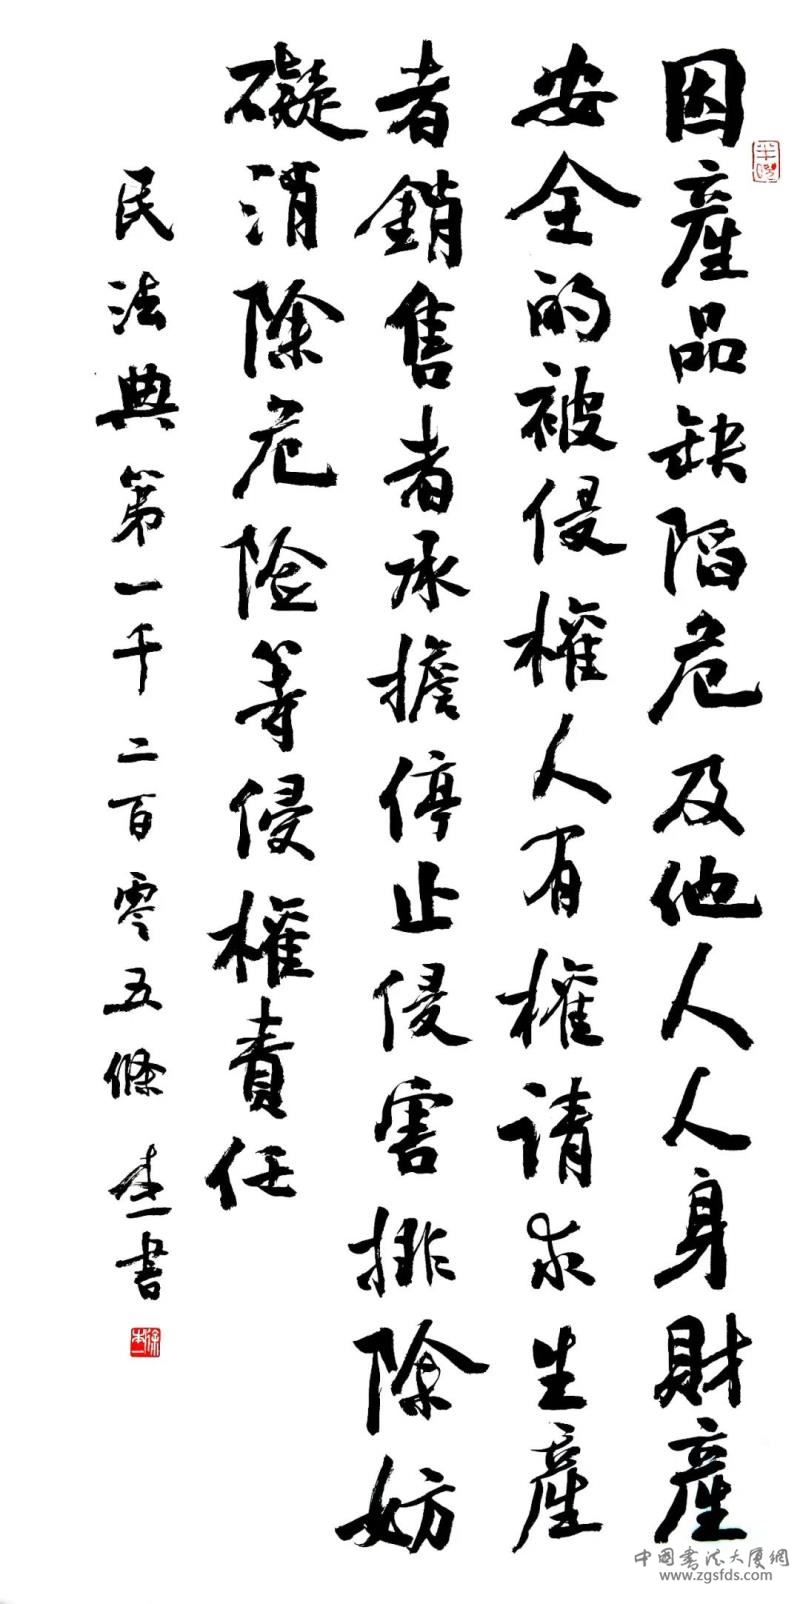 因產品缺陷危及他人人身財產
安全的被侵權人有權请求生產
者銷售者承擔停止侵害排除妨
礙消除危险等侵權責任
民法典第一千二百零五條 本一書
徐本一
中国書法大厦網
www.zgsfds.com